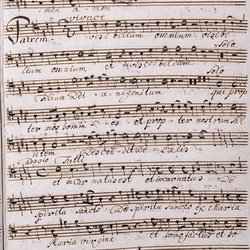 men a men
vivace
Patrem visi bilium omnium visibi
solo
lium omnium et invisi bilium
solo
Filium Dei u nigenitum qui prop
ter nos homi es et prop ter nostram sal
utem Descendit de Caelis
Adagio Tutti
et incar natus est et incarnatus De
Spiritu Sancto De Spiritu Sancto ex Maria
Maria virgine et homo factus est